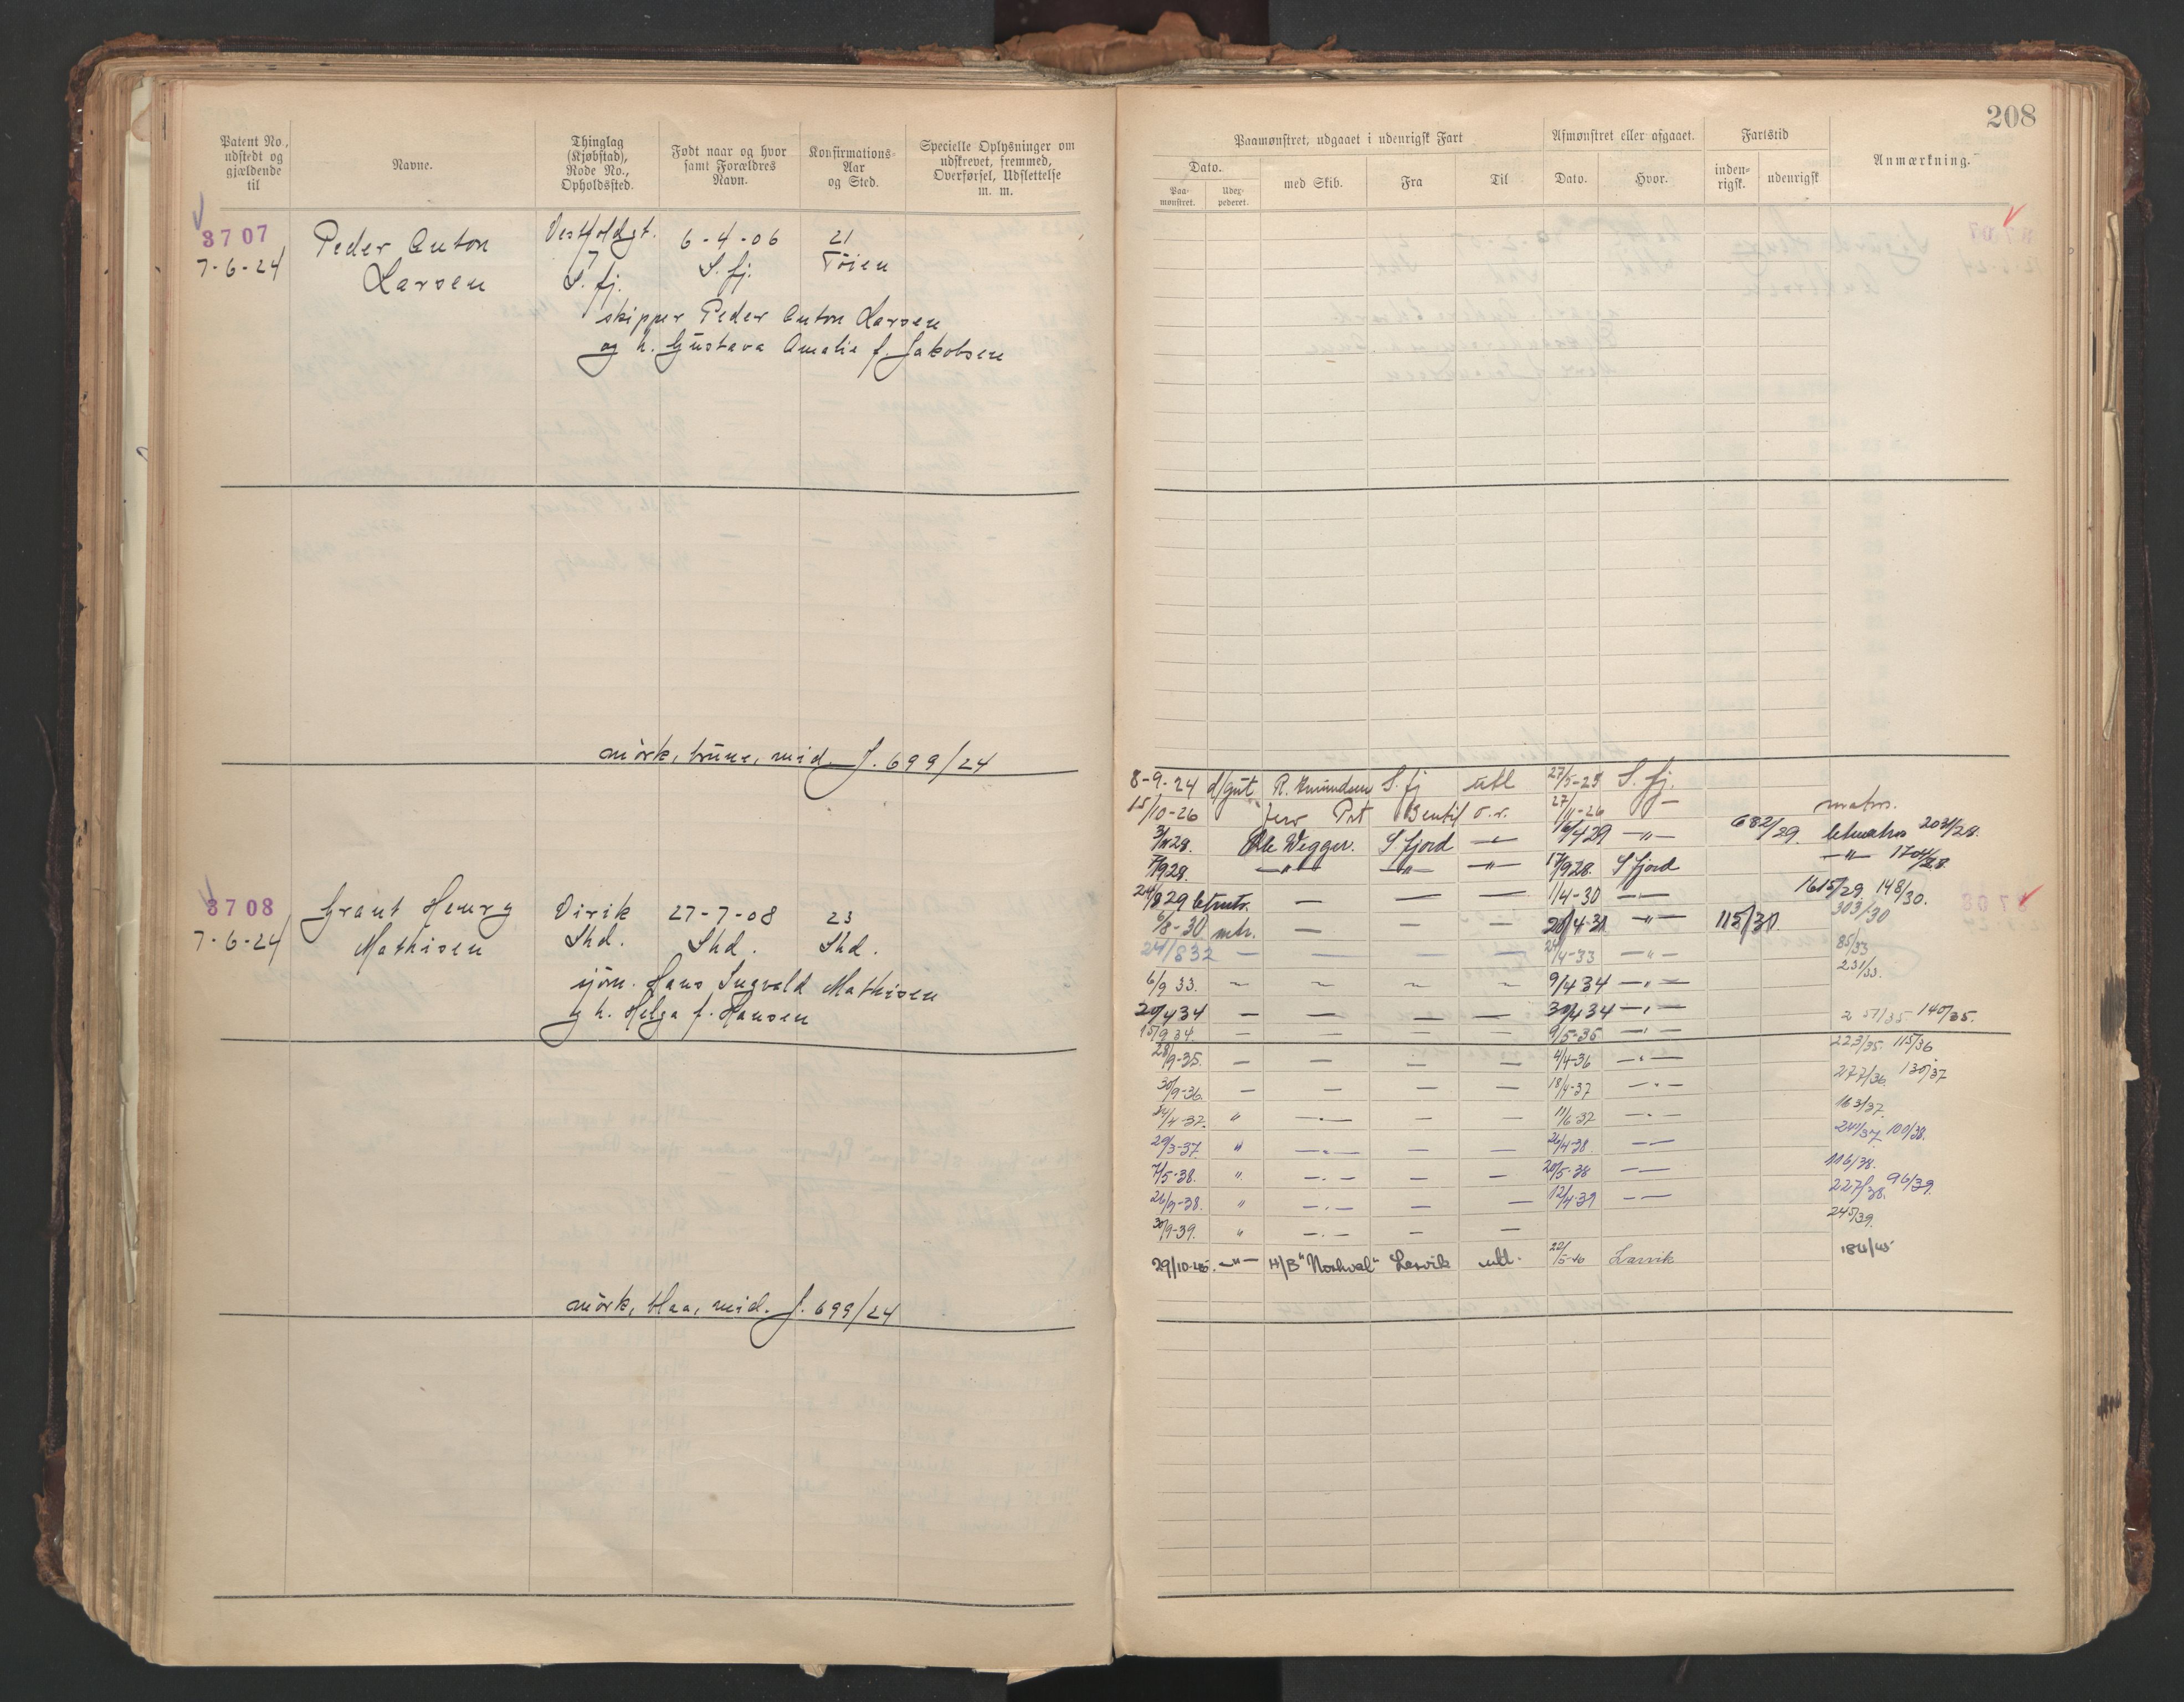 208
Patent No., udstedt og gjældende til
Navne.
Thinglag (Kjøbstad), Rode No., Opholdssted.
Født naar og hvor samt Forældres Navn.
Konfirmations-Aar og Sted.
Specielle Oplysninger om udskrevet, fremmed, Overførsel, Udslettelse m. m.
Paamønstret, udgaaet i udenrigsk Fart
Afmønstret eller afgaaet.
Fartstid
Anmærkning.
Dato.
med Skib.
Fra
Til
Dato.
Hvor.
inden-rigsk.
udenrigsk
Paa-mønstret.
Udex-pederet.
3707 Peder Anton Vestfoldgt. 6-4-06 21
7-6-24 Larsen S.fj. S.fj. Tøien
skipper Peder Anton Larsen
og h. Gustava Amalie f. Jakobsen
mörk, brune, mid. J. 699/24
8-9-24 d/gut R. Amundsen S.fj utl 27/5-25 S.fj.
15/10-26 Prt 27/11-26 — matros.
Ole Wegger. S.fjord —"— 16/4 29 —"— 682/29. letmatros 2031/28.
7/9 28. —"— —"— —"— 17/9 28. S fjord —"— 1704/28.
24/8 29 letmtr. — — — 1/4-30 —"— 1615/29 148/30.
6/8-30 mtr. — — — 28/4-31 —"— 115/30. 303/30
24/8 32 — — — — 24/4-33 —"— 85/33
6/9 33. ~ ~ ~ ~ 9/4 34 —"— 231/33.
20/4 34 — — — — 30/4 34 —"—
15/9 34. — — — — 9/5-35 —"— 251/35 140/35.
28/9-35. — — — — 4/4-36 —"— 223/35. 115/36
30/9-36. — — — — 18/4-37 —"— 277/36. 130/37
/4-37. " —"— — — 11/6-37 —"— 163/37.
29/3-37. " —"— — — 26/4-38 —— 241/37. 100/38.
7/5-38. " —"— — — 20/5-38 —— 116/38.
26/9-38. " —"— — — 12/4-39 —— 227/38. 96/39.
30/9-39. " —"— — — 245/39.
29/10-45. —"— H/B "Norhval" Larvik utl. 22/5-46 Larvik 184/45
3708 Grant Henry Virik 27-7-08 23
7-6-24 Mathisen Shd. Shd. Shd.
sjöm. Hans Ingvald Mathisen
og h. Helga f. Hansen
mörk, blaa, mid. J. 699/24